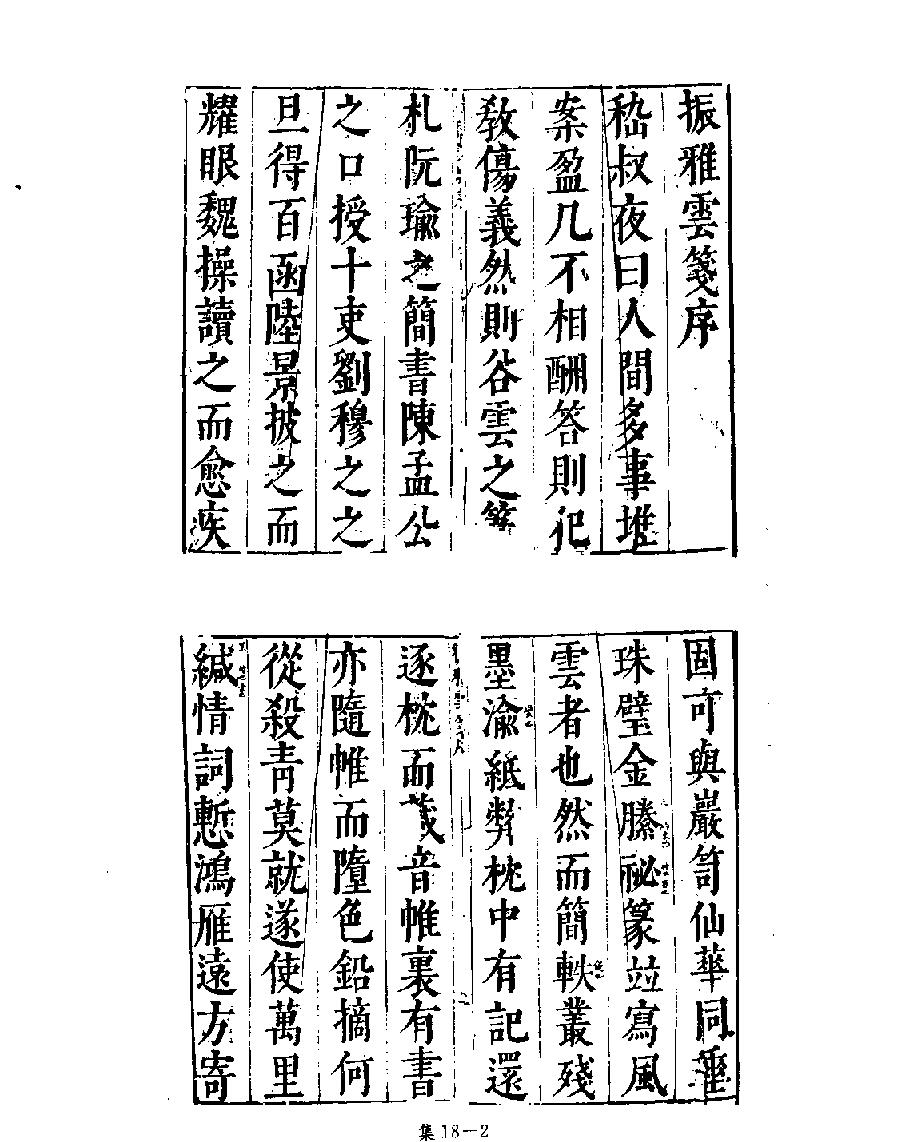 振雅雲箋序
嵇叔夜曰人間多事堆
案盈几不相酬答則犯
敎傷義然則谷雲之筆
札阮瑜之簡書陳孟公
之口授十吏劉穆之之
旦得百函陸景披之而
耀眼魏操讀之而愈疾
固可與巖笥仙華同
珠璧金縢祕篆竝寫風
雲者也然而簡軼叢殘
墨渝紙弊枕中有記還
逐枕而茂音帷裏有書
亦隨帷而墮色鉛摘何
從殺靑莫就遂使萬里
緘情詞慙鴻雁遠方寄
集18—2